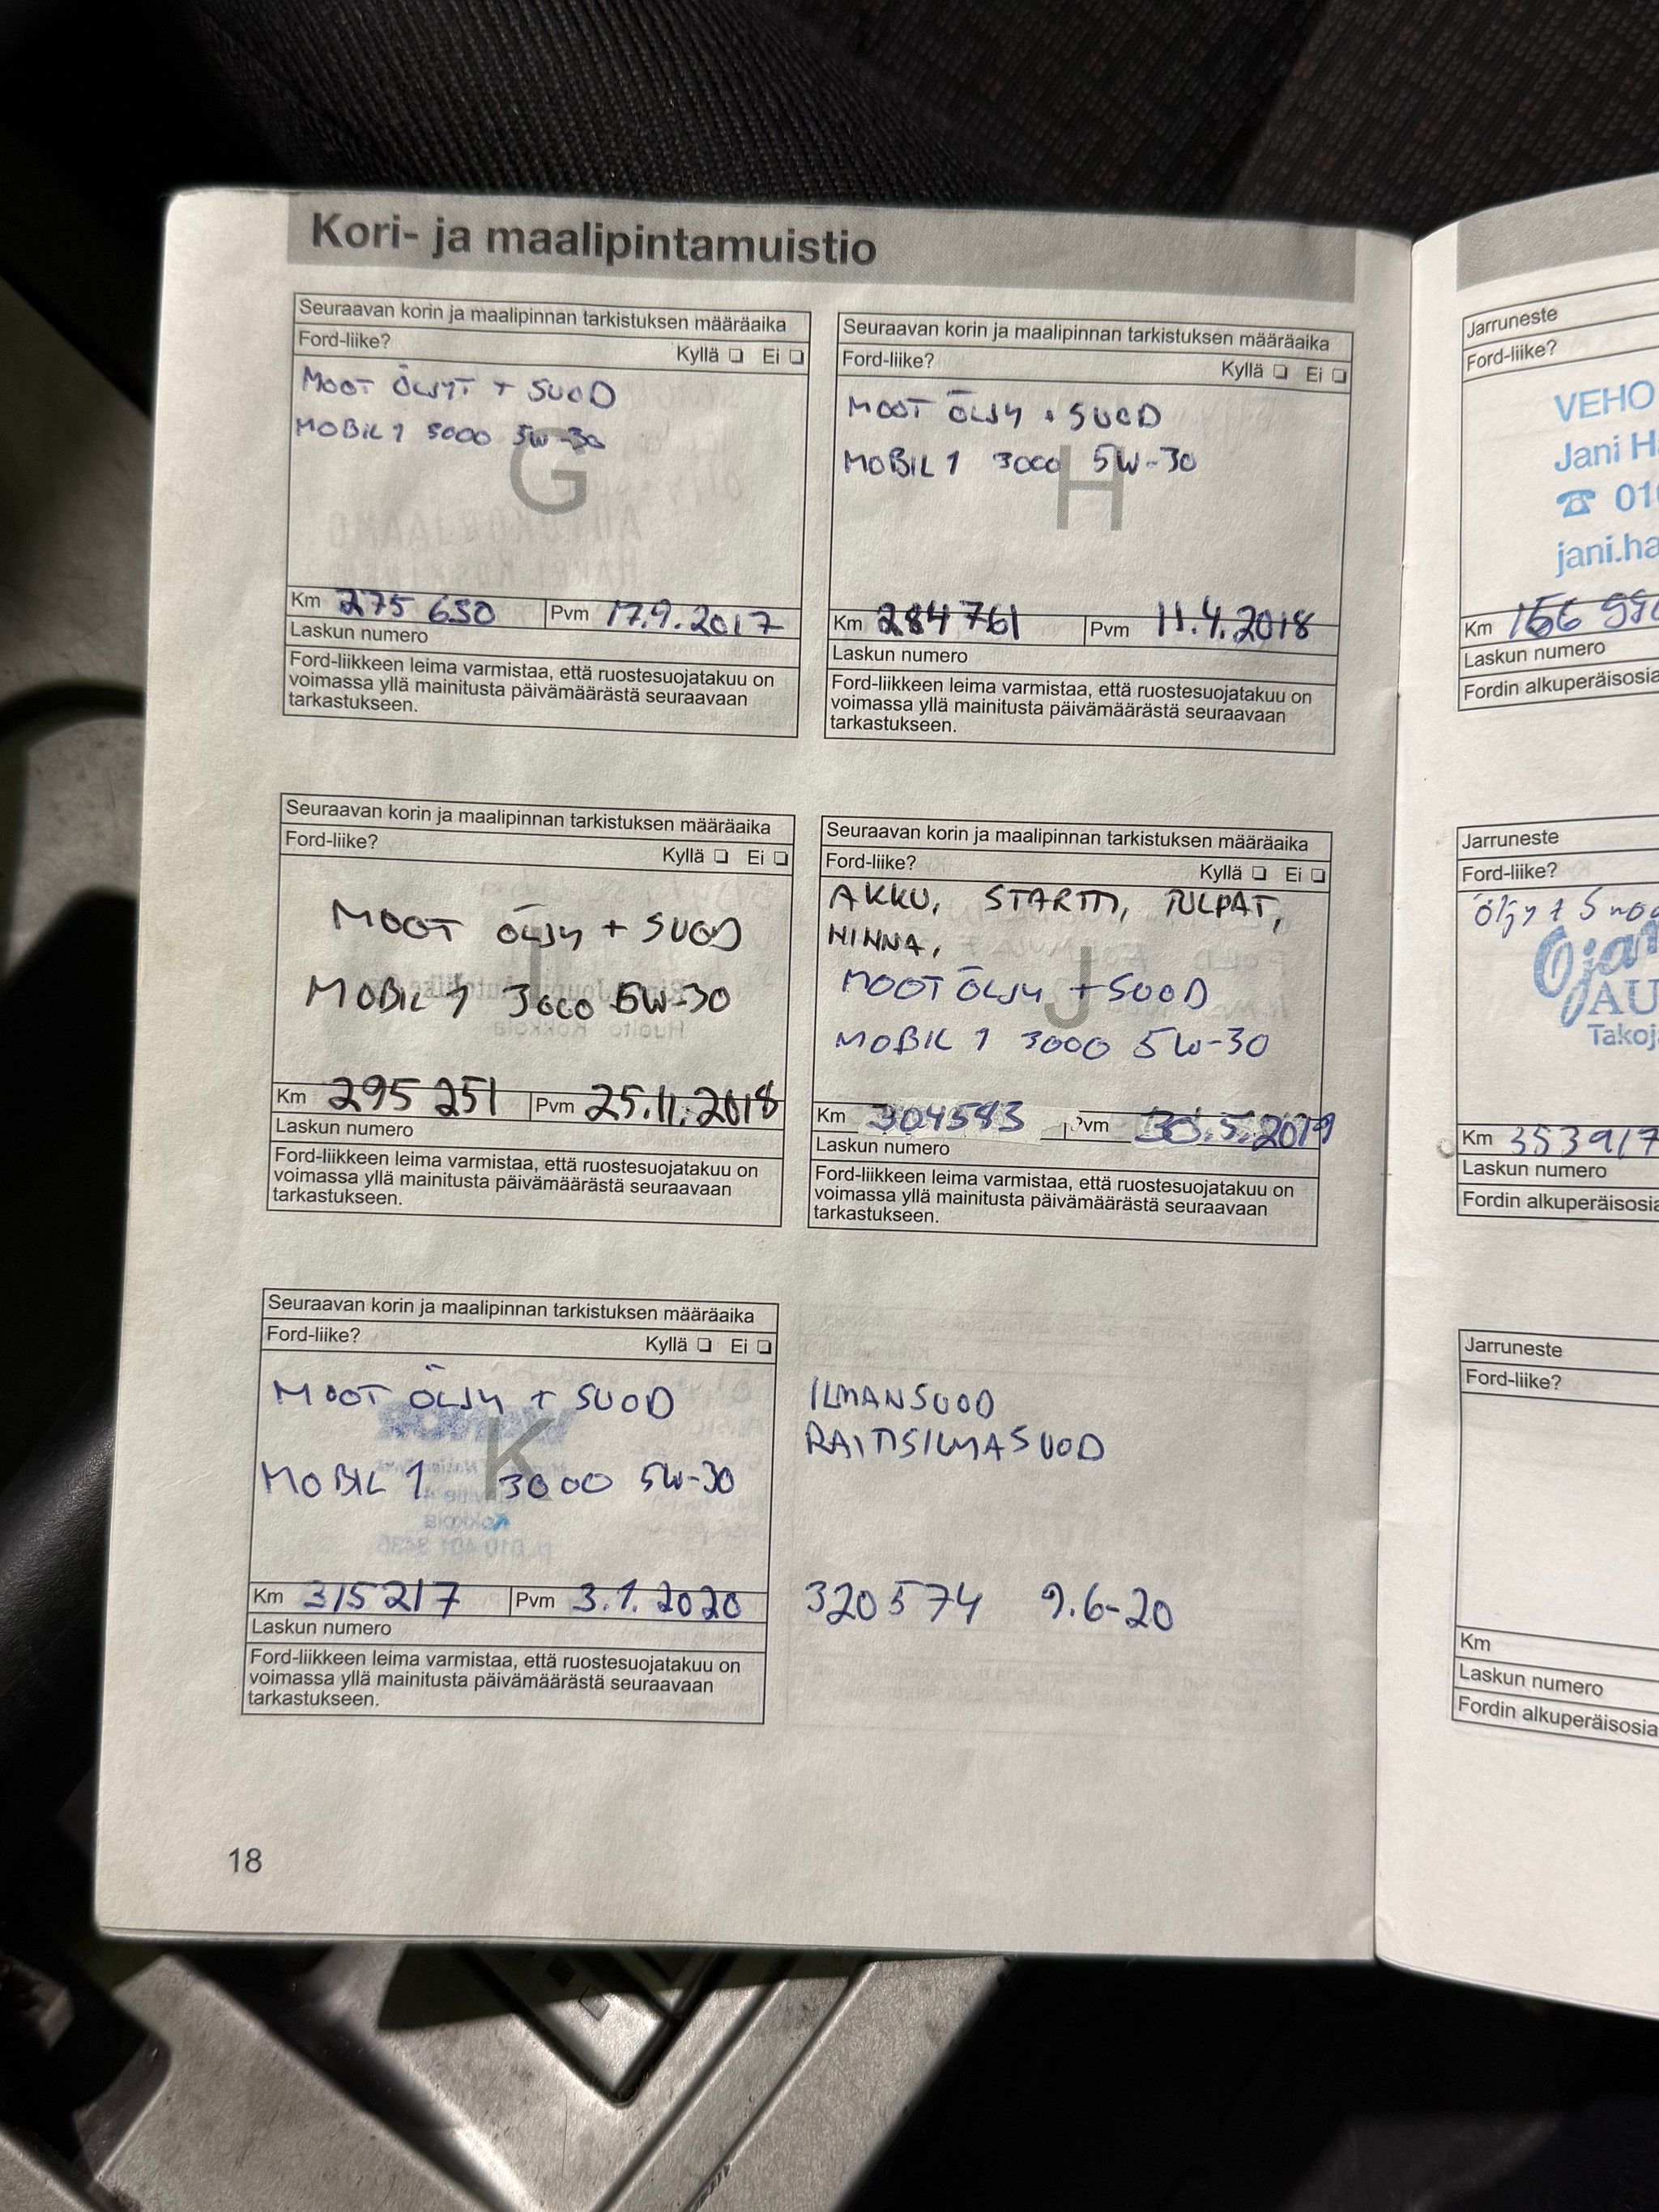 Kori- ja maalipintamuistio
Seuraavan korin ja maalipinnan tarkistuksen määräaika
Ford-liike?
Kyllä ❏ Ei ❏
MOOT ÖLJYT + SUOD
MOBIL 1 3000 5W-30
G
Km 275 650 Pvm 17.9.2017
Laskun numero
Ford-liikkeen leima varmistaa, että ruostesuojatakuu on
voimassa yllä mainitusta päivämäärästä seuraavaan
tarkastukseen.
Seuraavan korin ja maalipinnan tarkistuksen määräaika
Ford-liike?
Kyllä ❏ Ei ❏
MOOT ÖLJY + SUOD
MOBIL 1 3000 5W-30
H
Km 284 761 Pvm 11.4.2018
Laskun numero
Ford-liikkeen leima varmistaa, että ruostesuojatakuu on
voimassa yllä mainitusta päivämäärästä seuraavaan
tarkastukseen.
Seuraavan korin ja maalipinnan tarkistuksen määräaika
Ford-liike?
Kyllä ❏ Ei ❏
MOOT ÖLJY + SUOD
I
MOBIL 1 3000 5W-30
Km 295 251 Pvm 25.11.2018
Laskun numero
Ford-liikkeen leima varmistaa, että ruostesuojatakuu on
voimassa yllä mainitusta päivämäärästä seuraavaan
tarkastukseen.
Seuraavan korin ja maalipinnan tarkistuksen määräaika
Ford-liike?
Kyllä ❏ Ei ❏
AKKU, STARTTI, TULPAT,
HINNA,
MOOT ÖLJY + SUOD
J
MOBIL 1 3000 5W-30
Km 304593 Pvm 30.5.2019
Laskun numero
Ford-liikkeen leima varmistaa, että ruostesuojatakuu on
voimassa yllä mainitusta päivämäärästä seuraavaan
tarkastukseen.
Seuraavan korin ja maalipinnan tarkistuksen määräaika
Ford-liike?
Kyllä ❏ Ei ❏
MOOT ÖLJY + SUOD
K
MOBIL 1 3000 5W-30
Km 315217 Pvm 3.1.2020
Laskun numero
Ford-liikkeen leima varmistaa, että ruostesuojatakuu on
voimassa yllä mainitusta päivämäärästä seuraavaan
tarkastukseen.
ILMANSUOD
RAITISILMASUOD
320574 9.6-20
18
Jarruneste
Ford-liike?
VEHO
Jani H
☎ 010
jani.ha
Km 166 99
Laskun numero
Fordin alkuperäisosia
Jarruneste
Ford-liike?
Öljy + Suod
Ojan
AU
Takoj
Km 353917
Laskun numero
Fordin alkuperäisosia
Jarruneste
Ford-liike?
Km
Laskun numero
Fordin alkuperäisosia